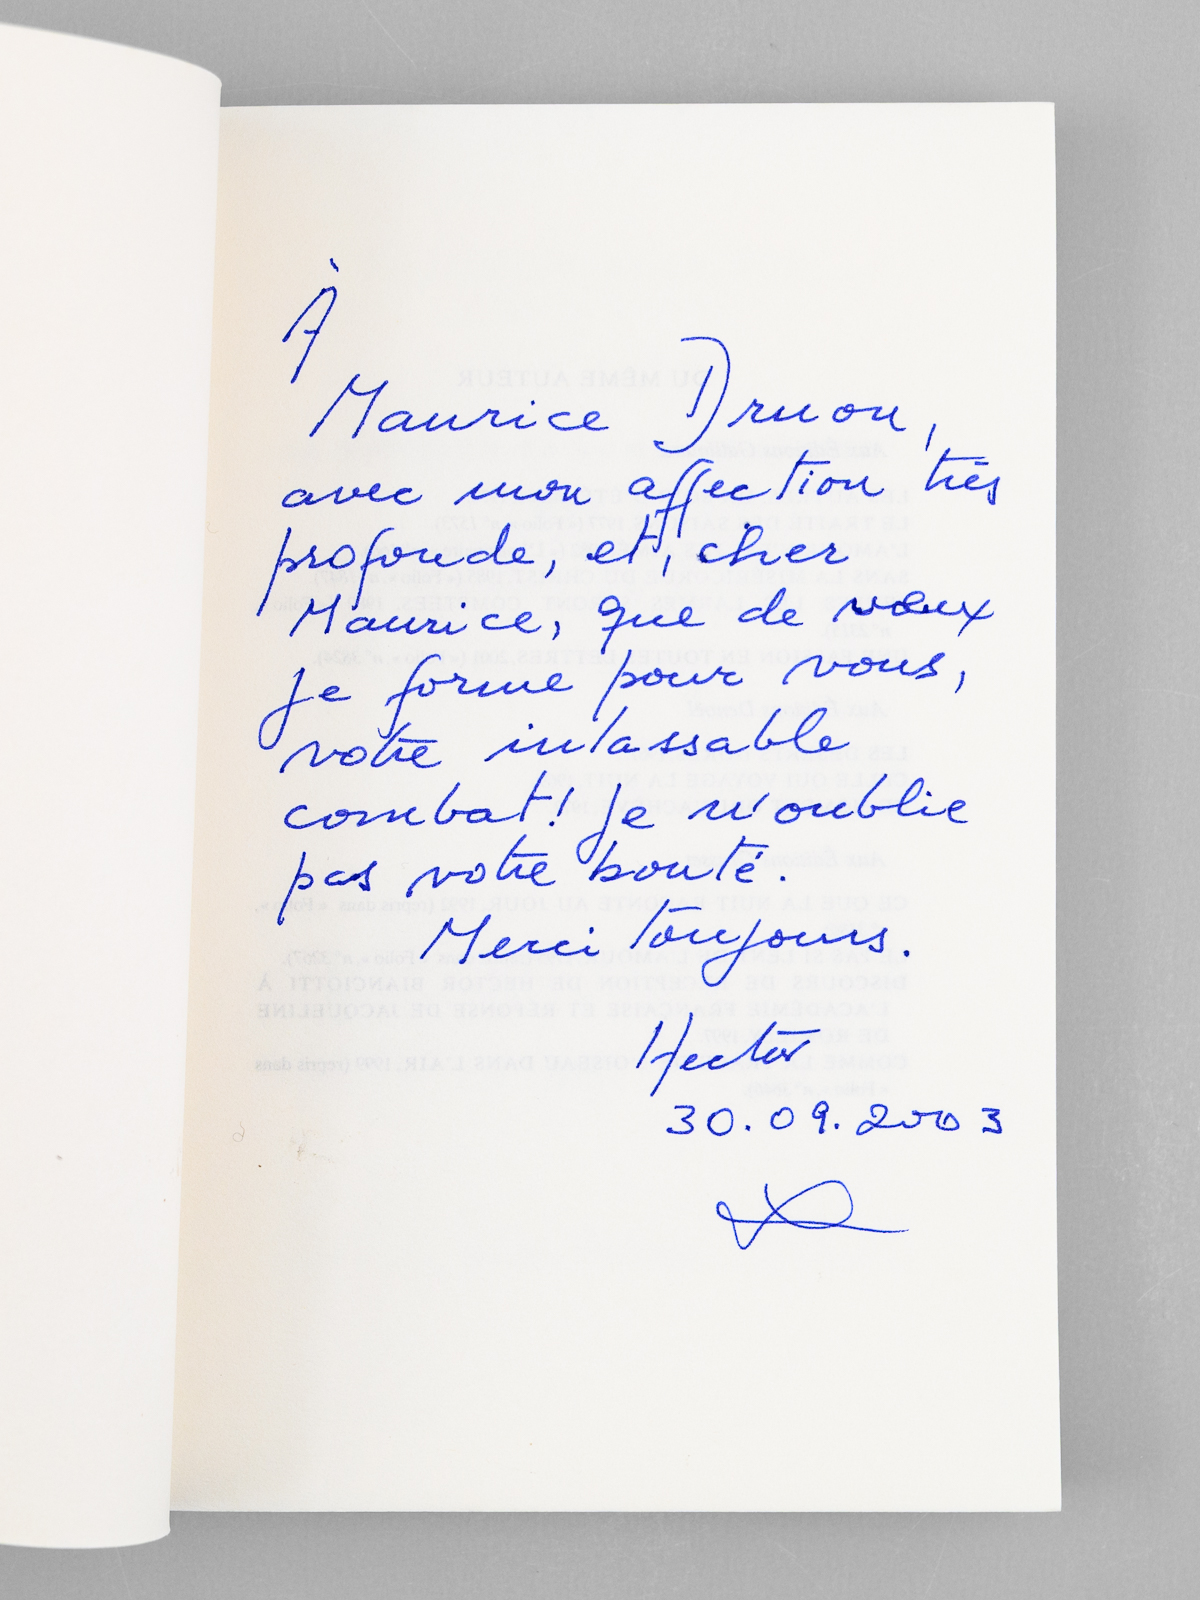 À
Maurice Druon,
avec mon affection très
profonde, et, cher
Maurice, que de vœux
je forme pour vous,
votre inlassable
combat! Je n'oublie
pas votre bonté.
Merci toujours.
Hector
30.09.2003